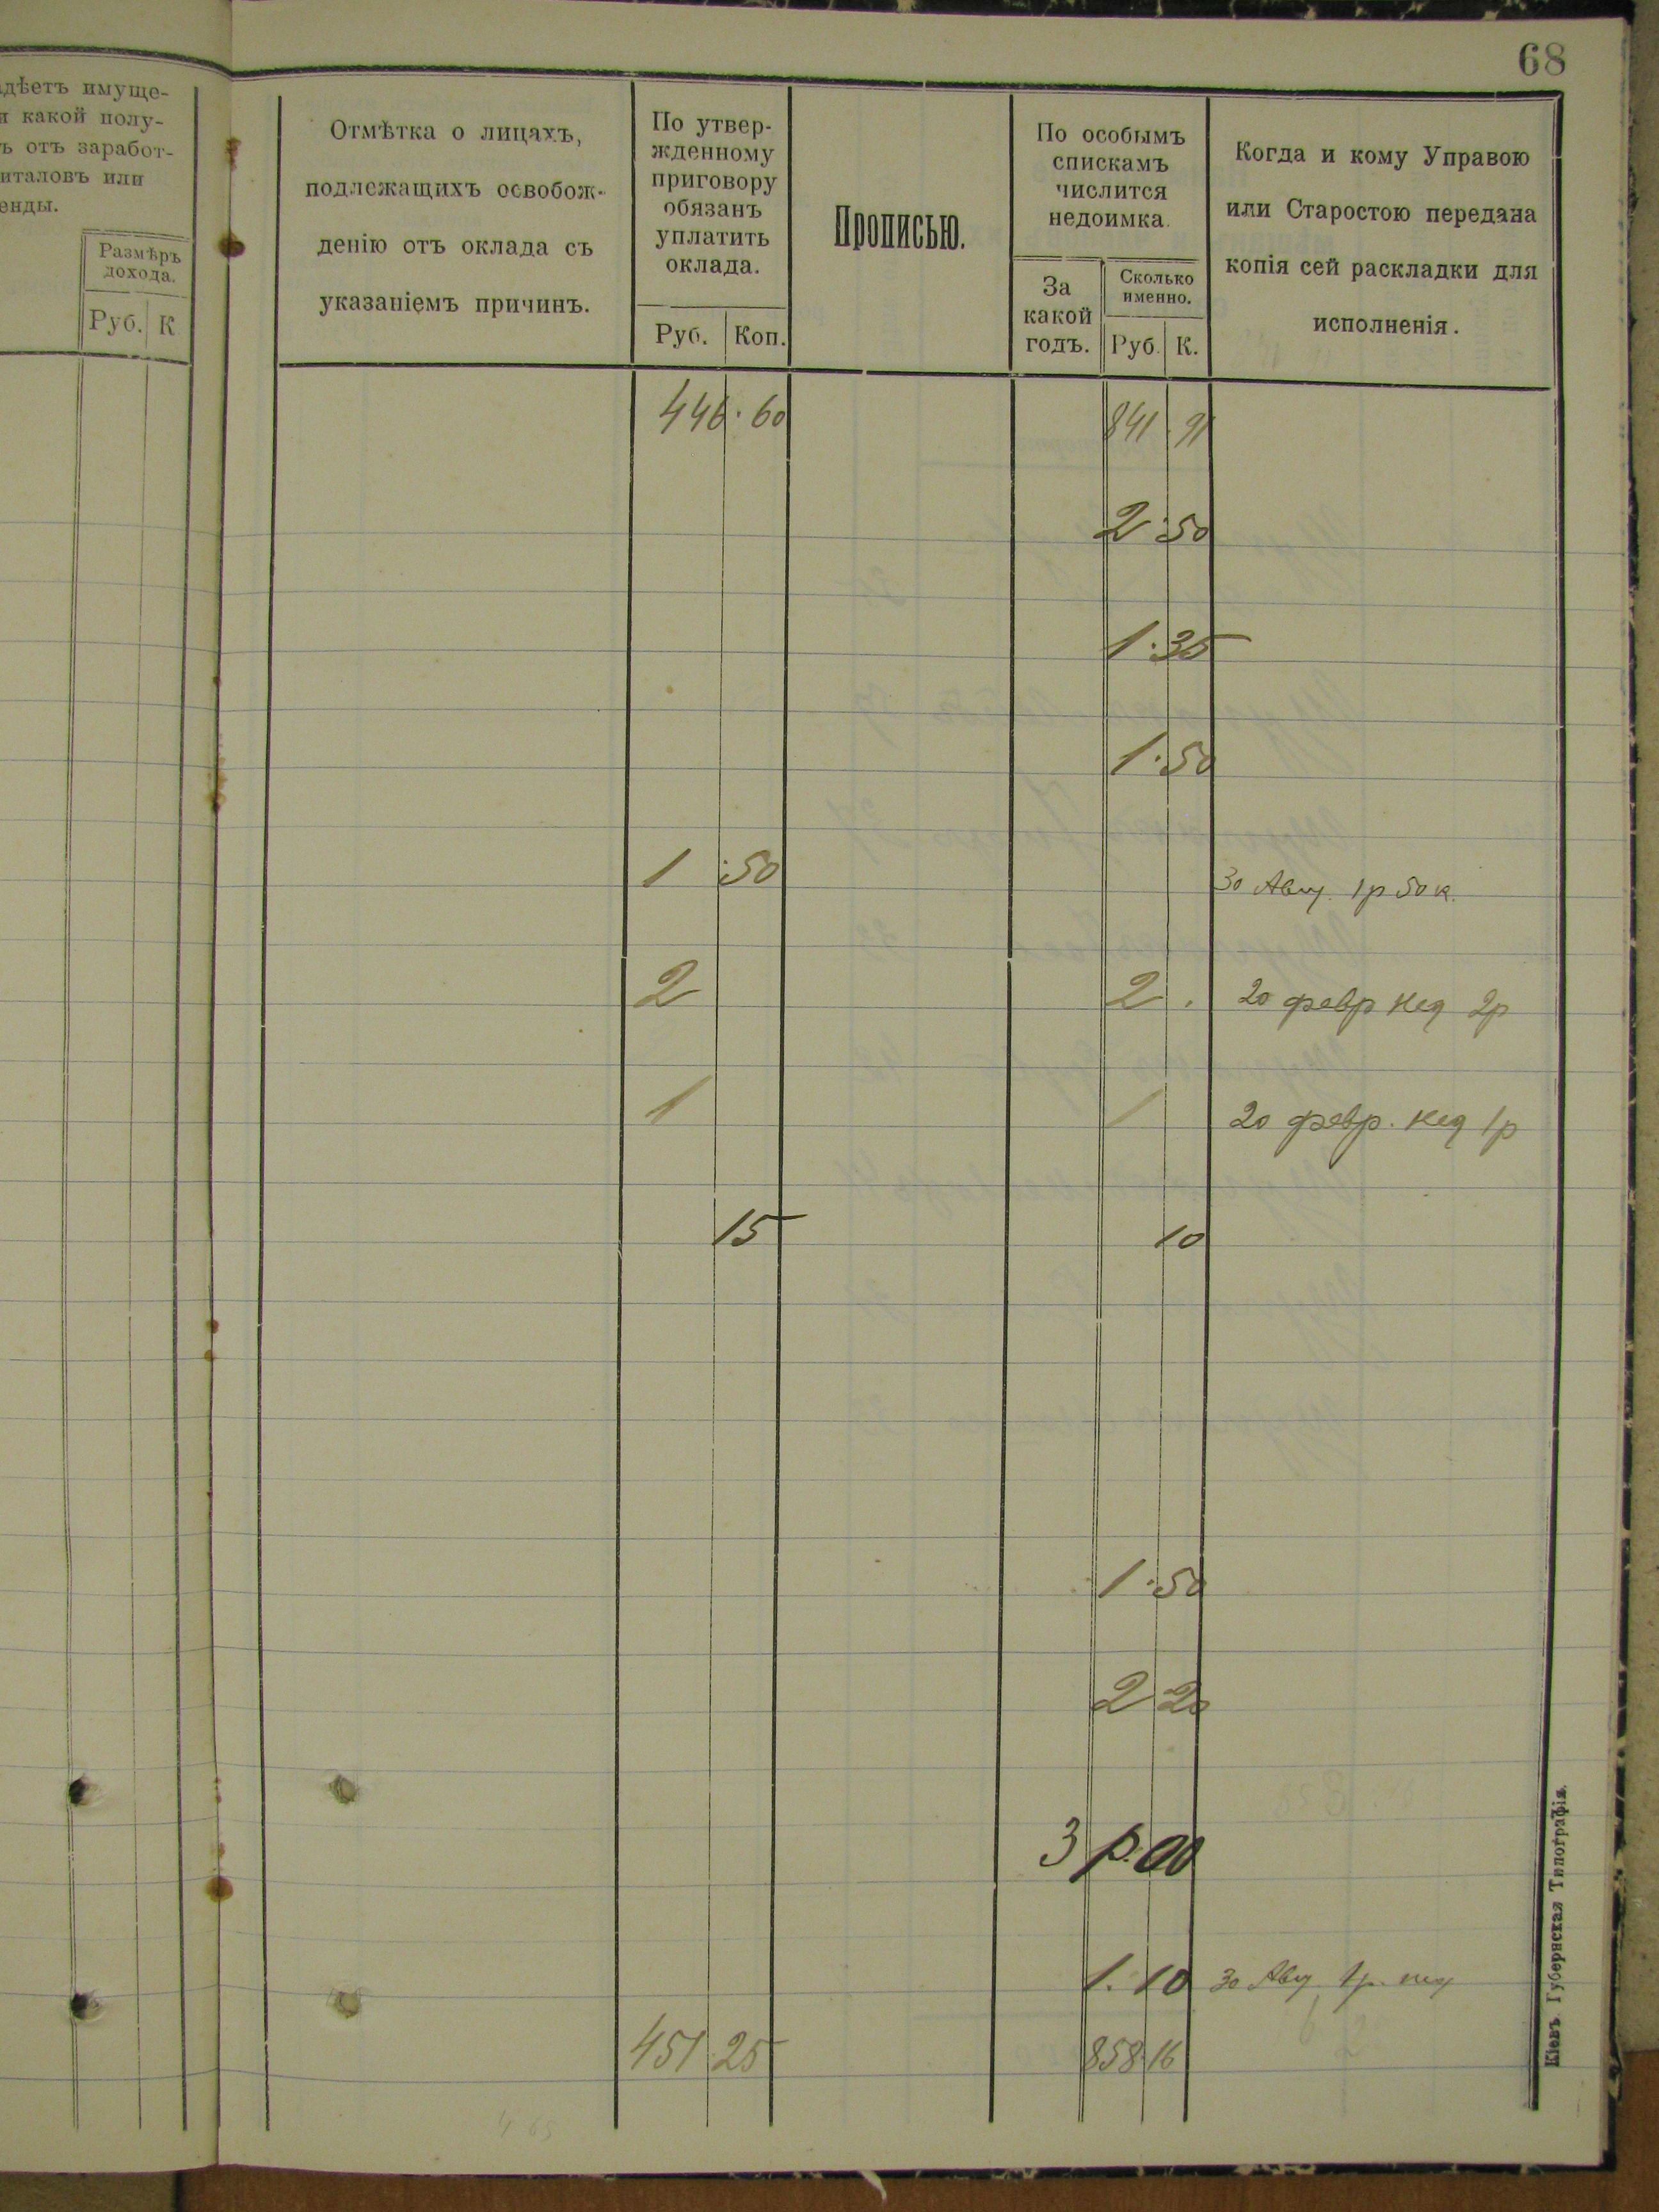 68
адѣетъ имуще-
и какой полу-
ъ отъ заработ-
италовъ или
енды.
Размѣръ
дохода.
Руб. К
Отмѣтка о лицахъ,
подлежащихъ освобож-
денію отъ оклада съ
указаніемъ причинъ.
По утвер-
жденному
приговору
обязанъ
уплатить
оклада.
Руб. Коп.
Прописью.
По особымъ
спискамъ
числится
недоимка.
За
какой
годъ.
Сколько
именно.
Руб. К.
Когда и кому Управою
или Старостою передана
копія сей раскладки для
исполненія.
446 · 60 841 · 91
2 · 50
1 · 35
1 · 50
1 · 50 30 Авг. 1р 50 к.
2 2 . 20 февр нед 2р
1 1 20 февр. нед 1р
15 10
1 · 50
2 20
3 р. 00
1. 10 30 Авг 1р. нед
451 25 858 · 16
4 65
Кіевъ. Губернская Типографія.